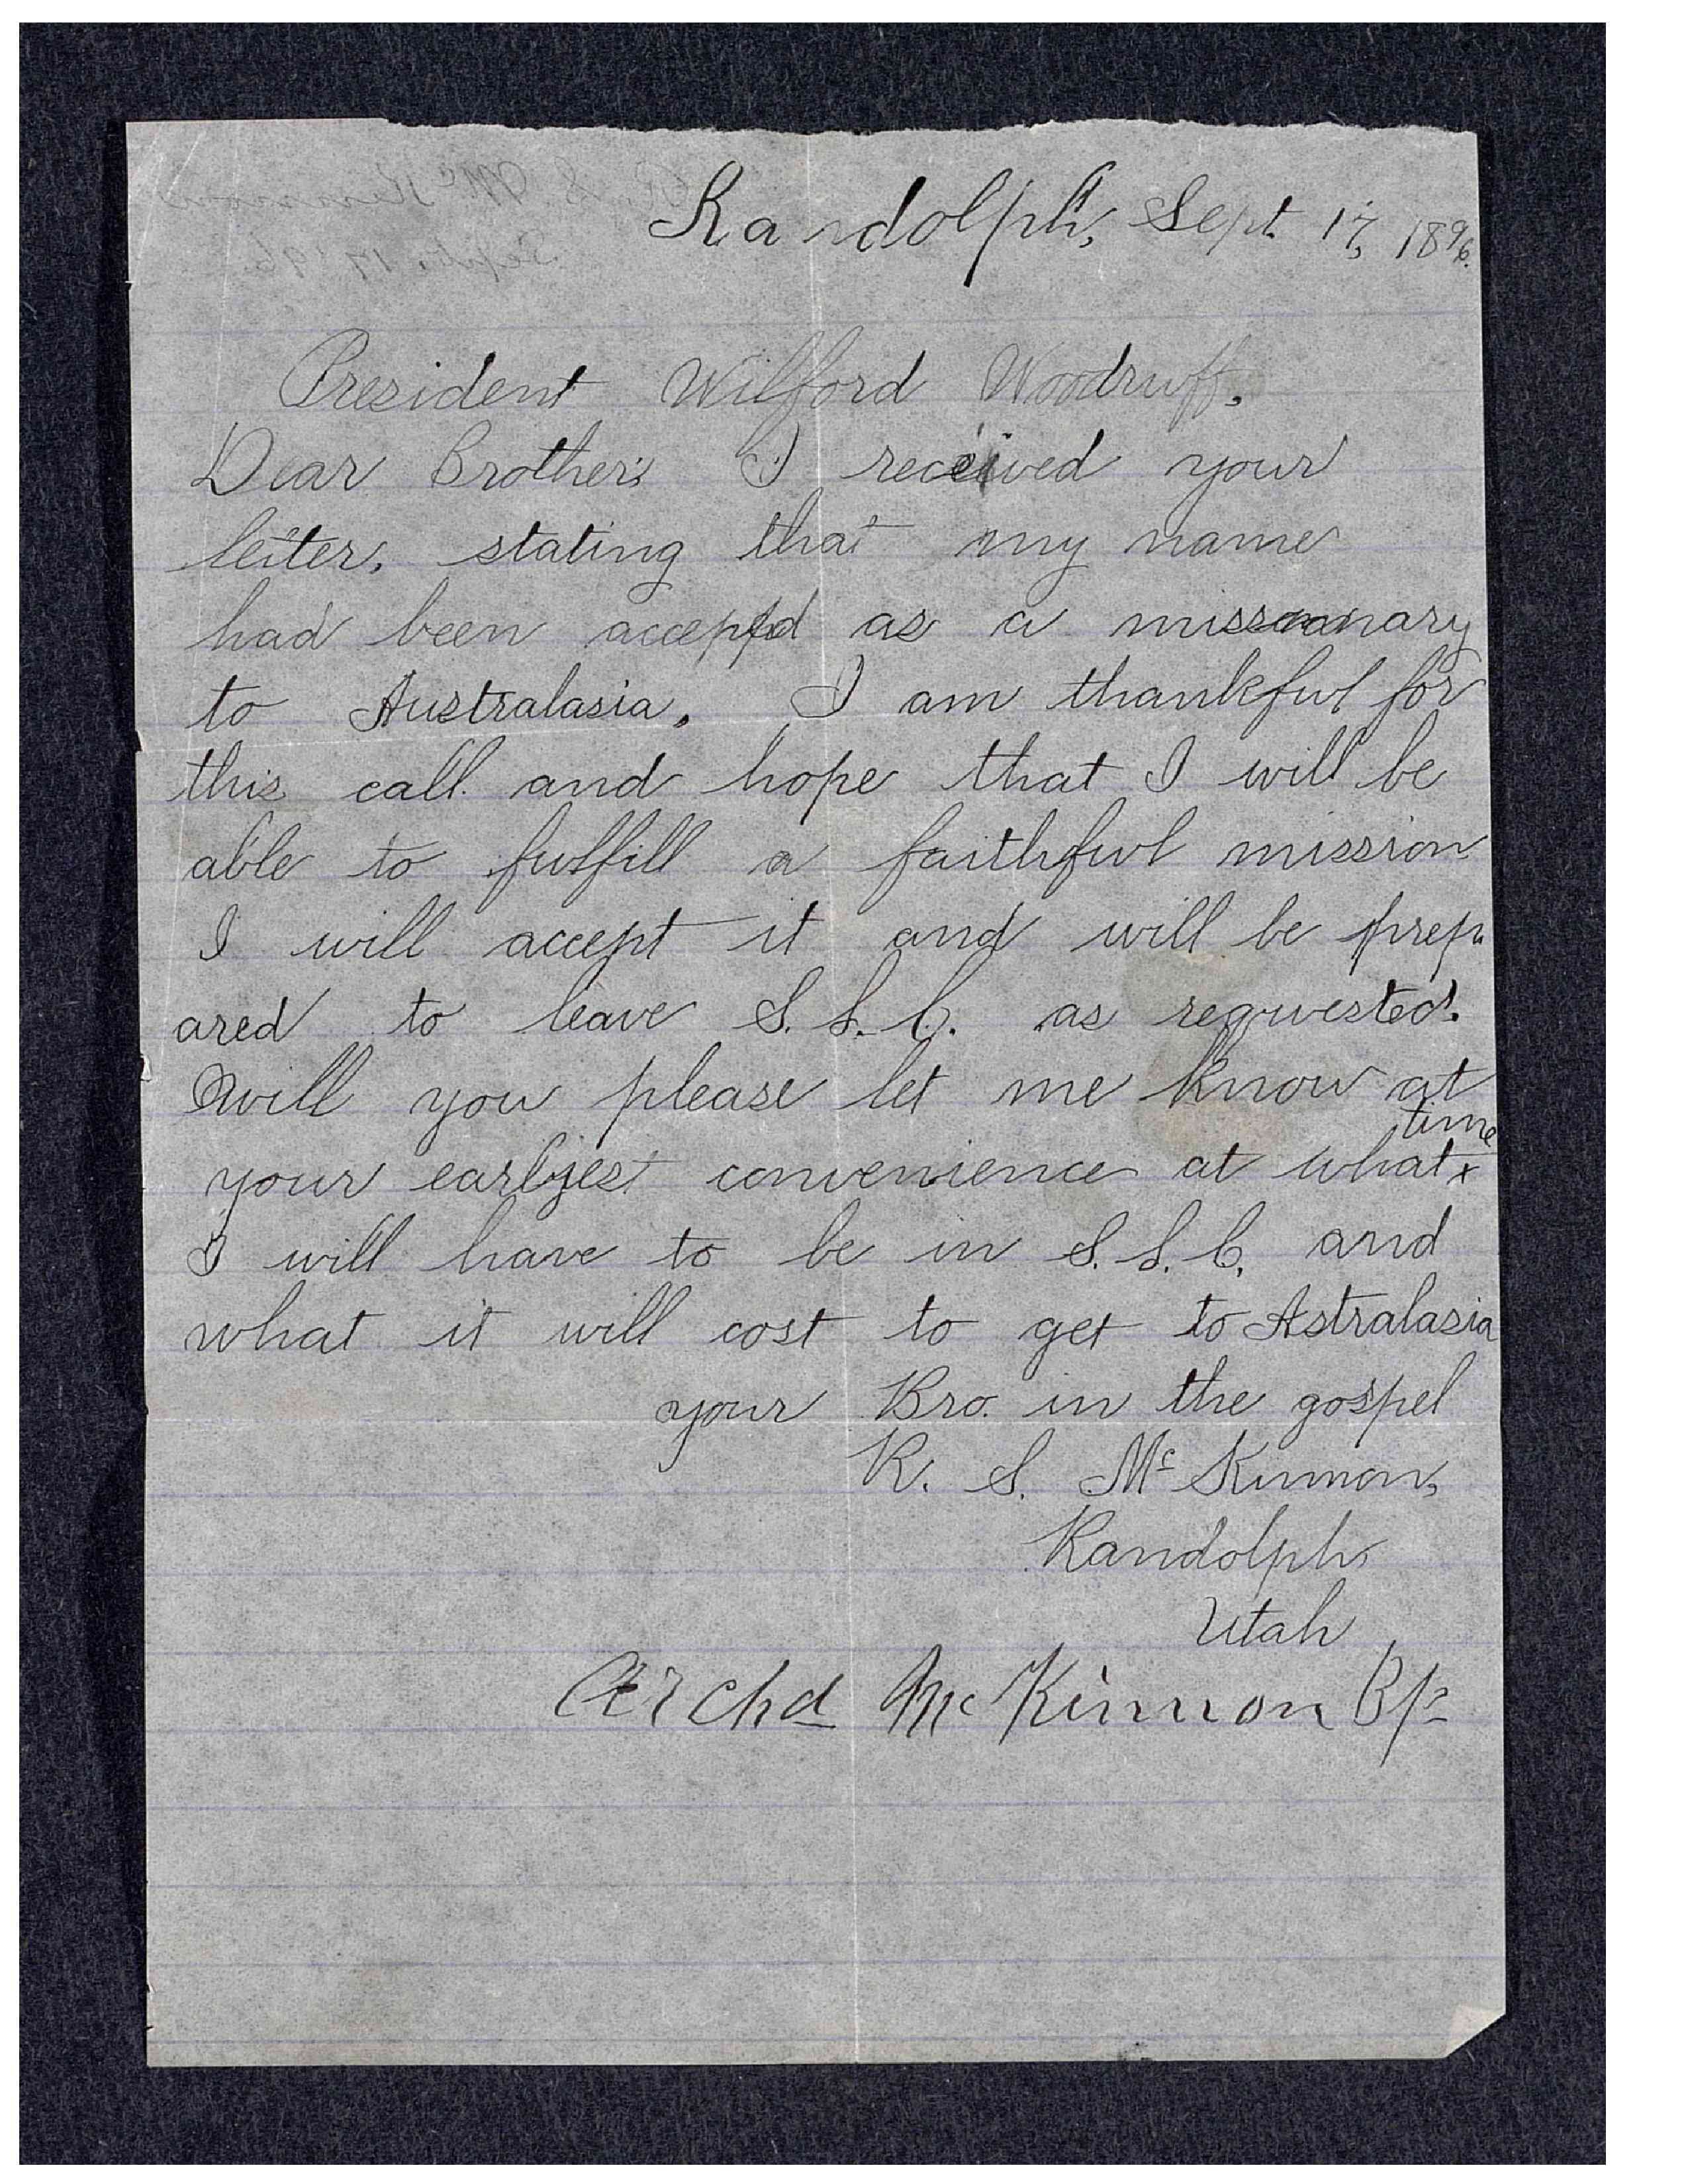 Randolph, Sept. 17, 1896.
President Wilford Woodruff,
Dear Brother: I received your
letter, stating that my name
had been accepted as a missonary
to Australasia. I am thankful for
this call and hope that I will be
able to fulfill a faithful mission
I will accept it and will be prep
ared to leave S.L.C. as requested.
Will you please let me know at
time
your earliest convenience at what x
I will have to be in S.L.C. and
what it will cost to get to Astralasia
your Bro. in the gospel
R. S. McKinnon,
Randolph
Utah
Archd McKinnon Bp